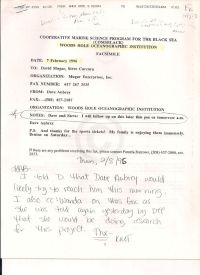 COOPERATIVE MARINE SCIENCE PROGRAM FOR THE BLACK SEA
(COMSBLACK)
WOODS HOLE OCEANOGRAPHIC INSTITUTION
FACSIMILE
DATE: 7 February 1996
TO: David Mugar, Steve Corcoro
ORGANIZATION: Mugar Enterprises, Inc.
FAX NUMBER: 617 267 3535
FROM: Dave Aubrey
FAX: (508) 457-2187
ORGANIZATION: WOODS HOLE OCEANOGRAPHIC INSTITUTION
NOTES: Dave and Steve: I will follow up on this later this pm or tomorrow a.m.
Dave Aubrey
P.S. And thanks for the sports tickets! My family is enjoying them immensely.
Bruins on Saturday...
If there are any problems receiving this fax, please contact Pamela Barrows, (508) 457-2000, ext.
Thurs, 2/8/96
I told D. that Dave Aubrey would
likely try to reach him this morning.
I also cc Wanda on this fax as
she was told again yesterday by Dave
that she would be doing research
for this project. Thx-